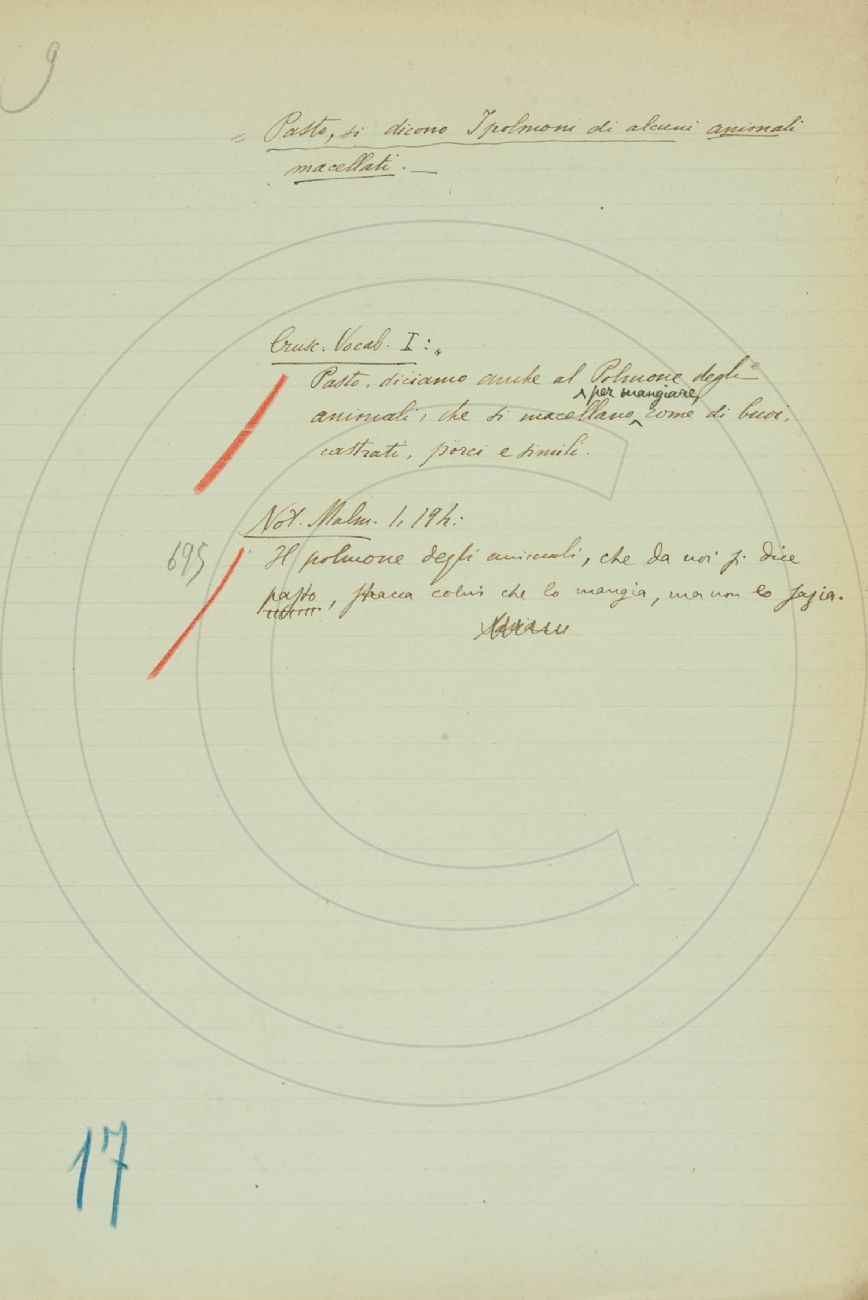 9
= Pasto, si dicono I polmoni di alcuni animali
macellati. —
Crusc. Vocab. I:
Pasto, diciamo anche al Polmone degli
per mangiare,
animali, che si macellano come di buoi,
castrati, porci e simili.
Not. Malm. 1, 194:
695
Il polmone degli animali, che da noi si dice
pasto, stracca colui che lo mangia, ma non lo sazia.
17